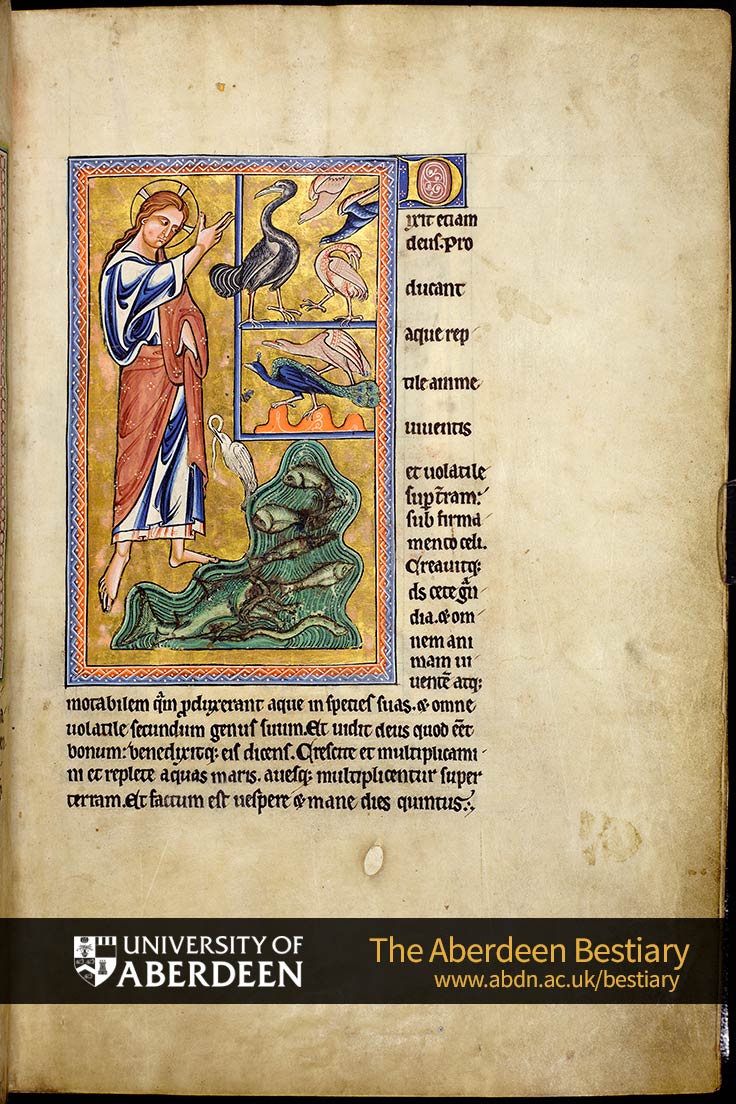 D
ixit etiam
deus. Pro
ducant
aque rep
tile anime
uiuentis
et uolatile
sup t̄ram:
sub firma
mento celi.
Creauitq:
ds cete gn
dia. & om
nem ani
mam ui
uentē atq:
motabilem qm pduxerant aque in species suas. & omne
uolatile secundum genus suum. Et uidit deus quod eēt
bonum: benedixitq: eis dicens. Crescite et multiplicami
ni et replete aquas maris. auesq: multiplicentur super
terram. Et factum est uespere & mane dies quintus.
UNIVERSITY OF
ABERDEEN
The Aberdeen Bestiary
www.abdn.ac.uk/bestiary